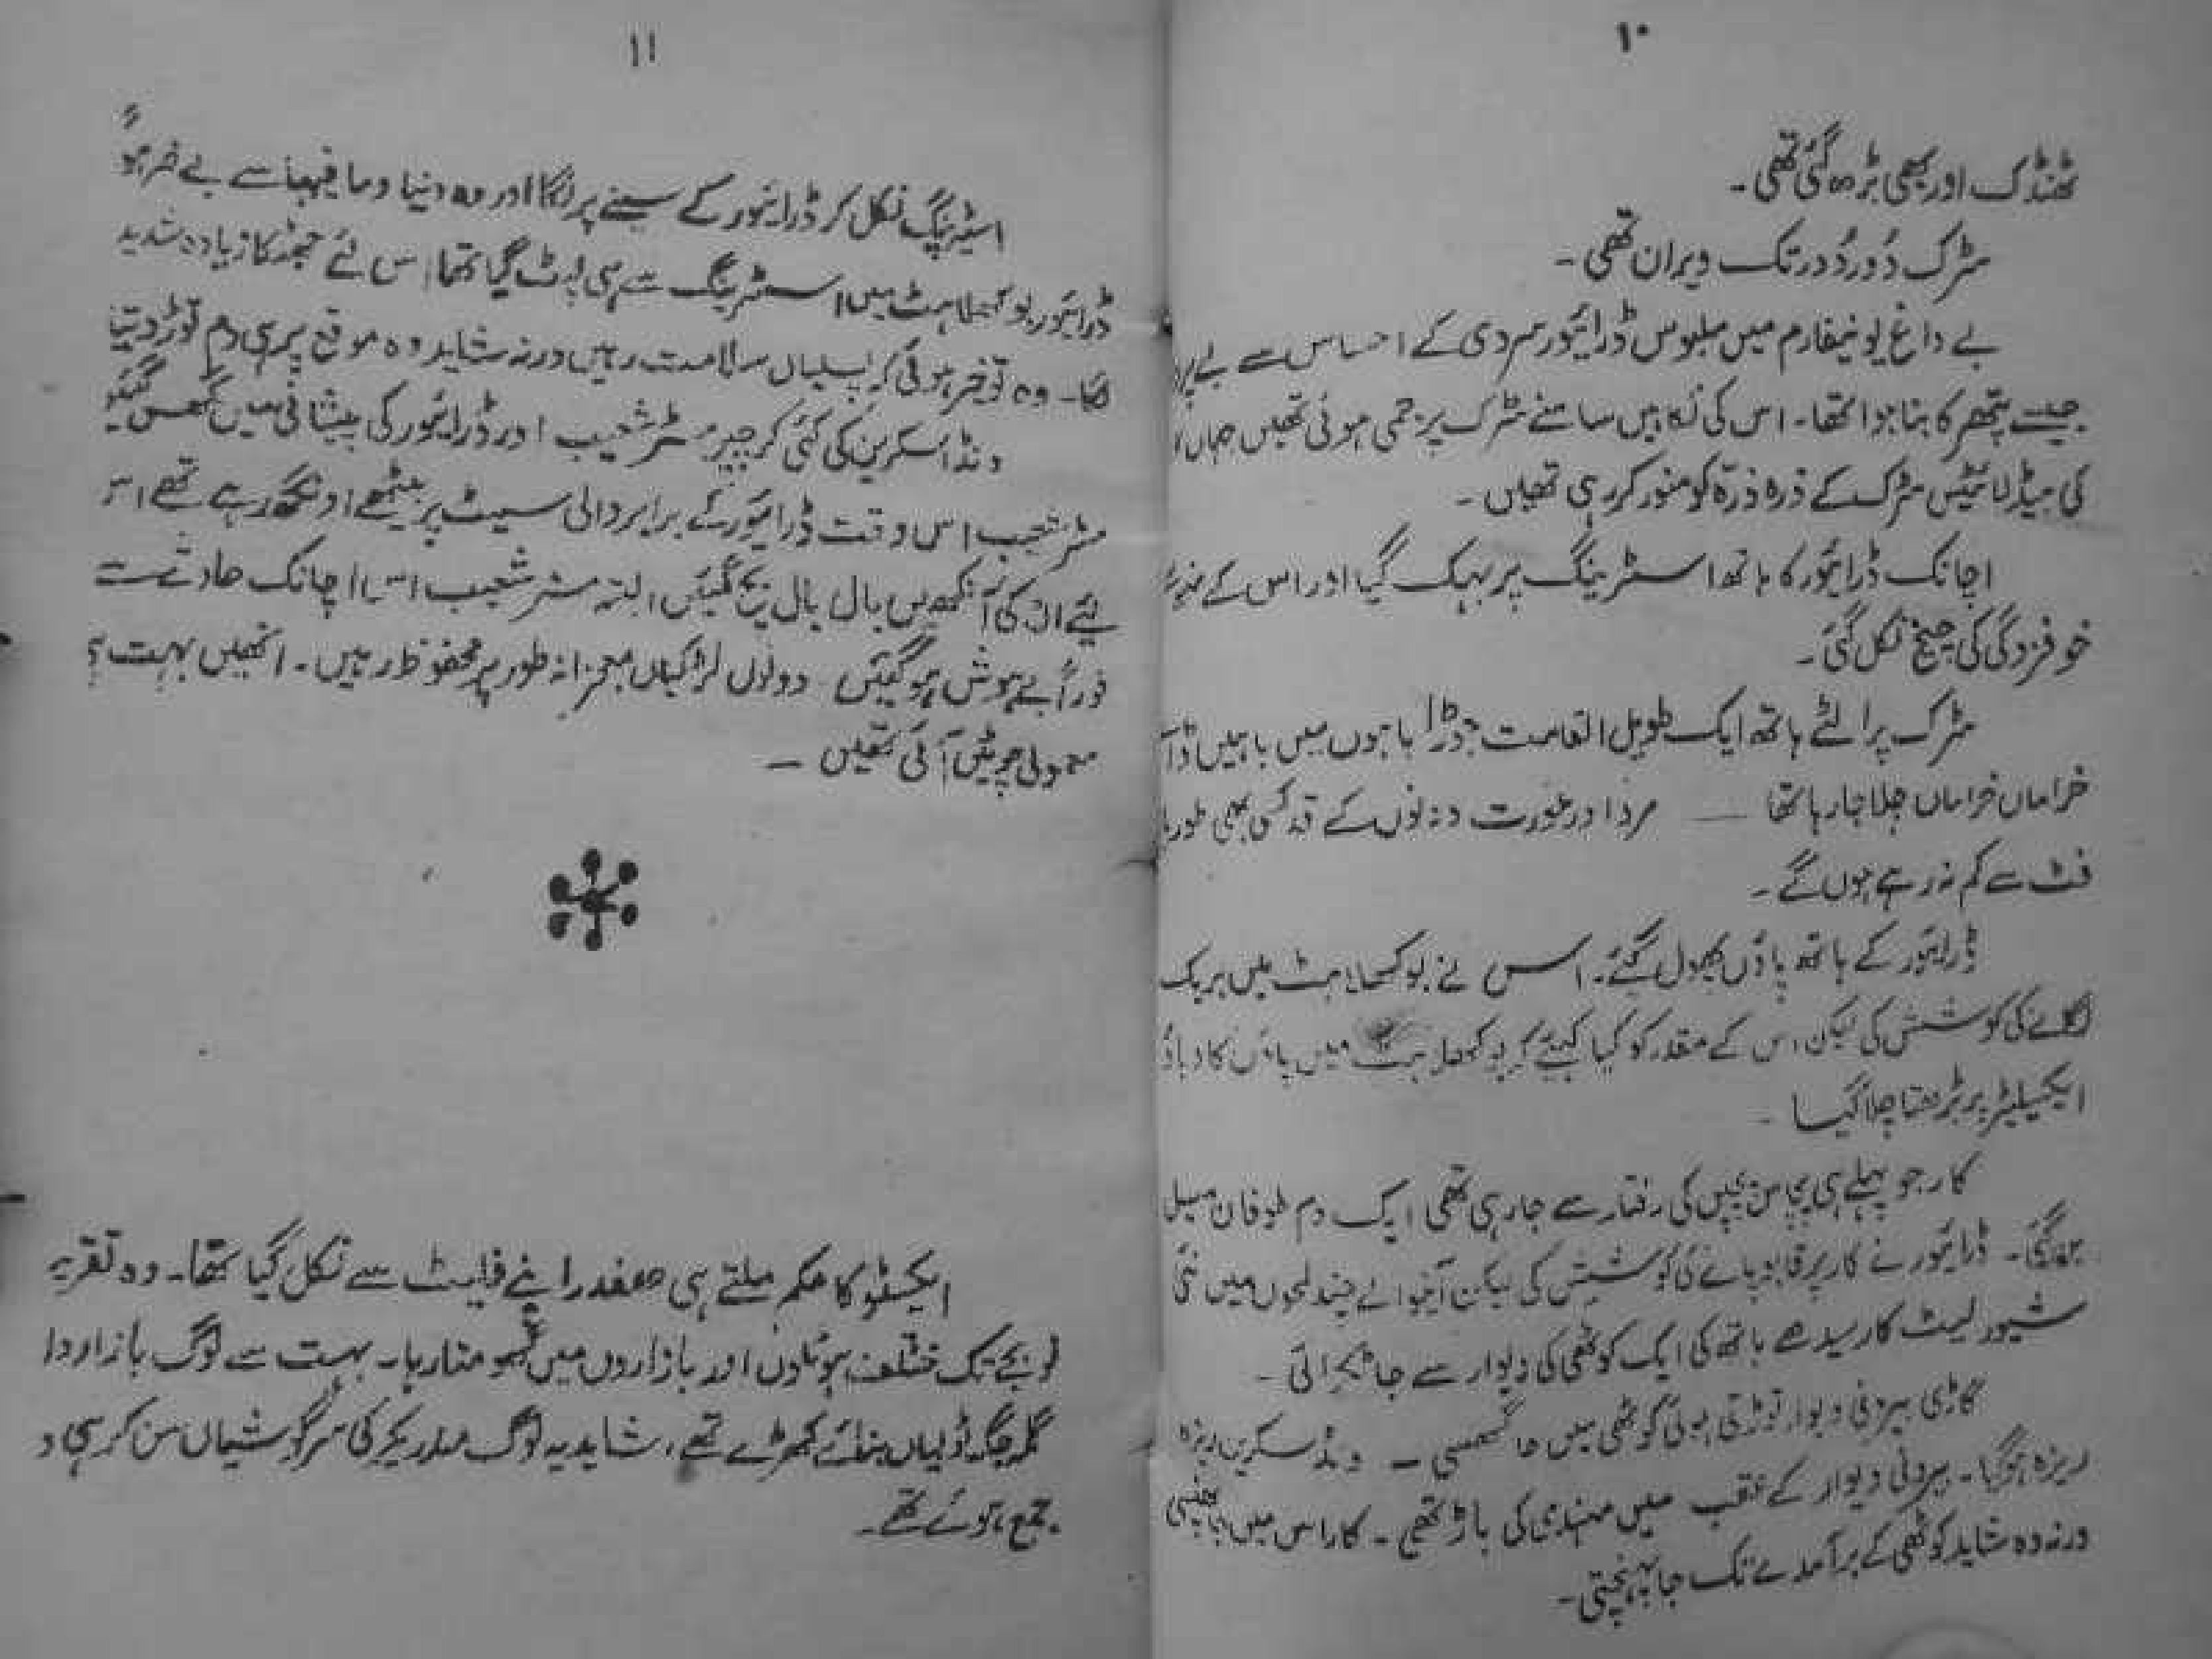 ۱۰
ٹھنڈک اور بھی بڑھ گئی تھی۔
سڑک دُور دُور تک ویران تھی۔
بے داغ یونیفارم میں ملبوس ڈرائیور سردی کے احساس سے بے
جیسے پتھر کا بنا ہوا تھا۔ اس کی نگاہیں سامنے سڑک پر جمی ہوئی تھیں جہاں
کی ہیڈ لائیٹس سڑک کے ذرہ ذرّہ کو منور کر رہی تھیں۔
اچانک ڈرائیور کا ہاتھ اسٹرینگ پر بہک گیا اور اس کے منہ
خوفزدگی کی چیخ نکل گئی۔
سڑک پر الٹے ہاتھ ایک طویل القامت جوڑا باہوں میں باہیں
خراماں خراماں چلا جا رہا تھا — مرد اور عورت دونوں کے قد کسی بھی طور
فٹ سے کم نہ رہے ہوں گے۔
ڈرائیور کے ہاتھ پاؤں پھول گئے۔ اس نے بوکھلاہٹ میں بریک
لگانے کی کوشش کی لیکن اس کے مقدر کو کیا کہیئے کہ بوکھلاہٹ میں پاؤں کا دباؤ
ایکسیلیٹر پر بڑھتا چلا گیا۔
کار جو پہلے ہی پچاس پچپن کی رفتار سے جا رہی تھی ایک دم طوفان میل
بن گئی۔ ڈرائیور نے کار پر قابو پانے کی کوشش کی لیکن آنیوالے چند لمحوں میں نئی
شیورلیٹ کار سیدھے ہاتھ کی ایک کوٹھی کی دیوار سے جا ٹکرائی۔
گاڑی بیرونی دیوار توڑتی ہوئی کوٹھی میں جا گھسی — ونڈ سکرین ریزہ
ریزہ ہو گیا۔ بیرونی دیوار کے عقب میں مہندی کی باڑ تھی۔ کار اس میں جا پھنسی
ورنہ وہ شاید کوٹھی کے برآمدے تک جا پہنچتی۔
۱۱
اسٹیرنگ نکل کر ڈرائیور کے سینے پر لگا اور وہ دنیا و مافیہا سے بے خبر ہو گ
ڈرائیور بوکھلاہٹ میں اسٹرینگ سے ہی لپٹ گیا تھا اس لئے جھٹکا زیادہ شدید
لگا۔ وہ تو خیر ہوئی کہ پسلیاں سلامت رہیں ورنہ شاید وہ موقع پر ہی دم توڑ دیتا
ونڈ اسکرین کی کئی کرچیں مسٹر شعیب اور ڈرائیور کی پیشانی میں گھس گئیں
مسٹر شعیب اس وقت ڈرائیور کے برابر والی سیٹ پر بیٹھے اونگھ رہے تھے اس
لیئے ان کی آنکھیں بال بال بچ گئیں البتہ مسٹر شعیب اس اچانک حادثے سے
فوراً بے ہوش ہو گئیں دونوں لڑکیاں معجزانہ طور پر محفوظ رہیں۔ انھیں بہت ہی
معمولی چوٹیں آئی تھیں —
ایکسٹو کا حکم ملتے ہی صفدر اپنے فلیٹ سے نکل گیا تھا۔ وہ تقریبا
نو بجے تک مختلف ہوٹلوں اور بازاروں میں گھومتا رہا۔ بہت سے لوگ بازار
جگہ جگہ ٹولیاں بنائے کھڑے تھے، شاید یہ لوگ کی سرگوشیاں سن کر ہی و
جمع ہوئے تھے۔